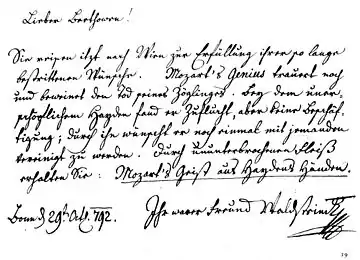 Lieber Beethowen!
Sie reisen itzt nach Wien zur Erfüllung ihrer so lange
bestrittenen Wünsche. Mozart's Genius trauert noch
und beweinet den Tod seines Zöglinges. Bey dem uner-
schöpflichem Hayden fand er Zuflucht, aber keine Beschäf-
tigung; durch ihn wünscht er noch einmal mit jemanden
vereinigt zu werden. Durch ununterbrochenen Fleiß
erhalten Sie: Mozart's Geist aus Haydens Händen.
Ihr warer Freund Waldstein
Bonn d 29t Oct. 792.
19